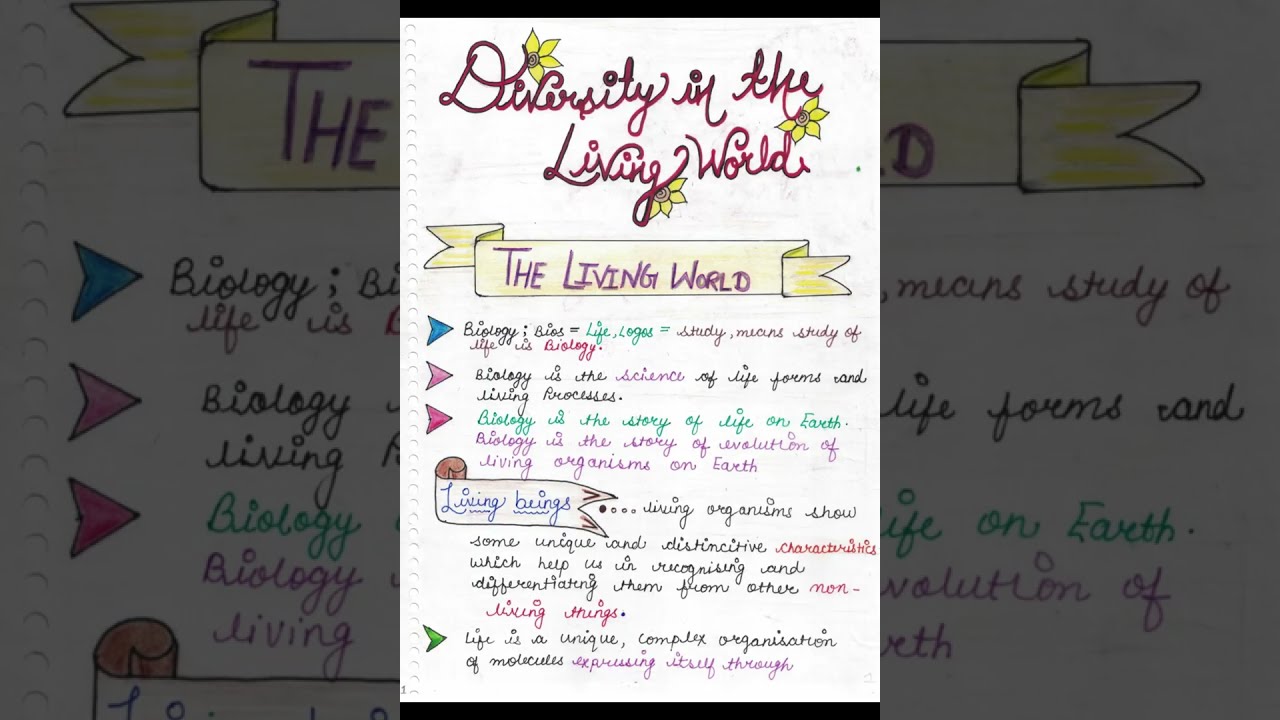 Diversity in the
Living World
THE LIVING WORLD
Biology; Bios = Life, Logos = study, means study of
life is Biology.
Biology is the science of life forms and
living Processes.
Biology is the story of life on Earth.
Biology is the story of evolution of
living organisms on Earth
Living beings .... living organisms show
some unique and distincitive characteristics
which help us in recognising and
differentiating them from other non-
living things.
life is a unique, complex organisation
of molecules expressing itself through